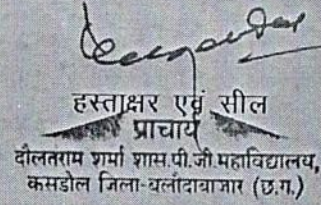 हस्ताक्षर एवं सील
प्राचार्य
दौलतराम शर्मा शास.पी.जी.महाविद्यालय,
कसडोल जिला-बलौदाबाजार (छ.ग.)